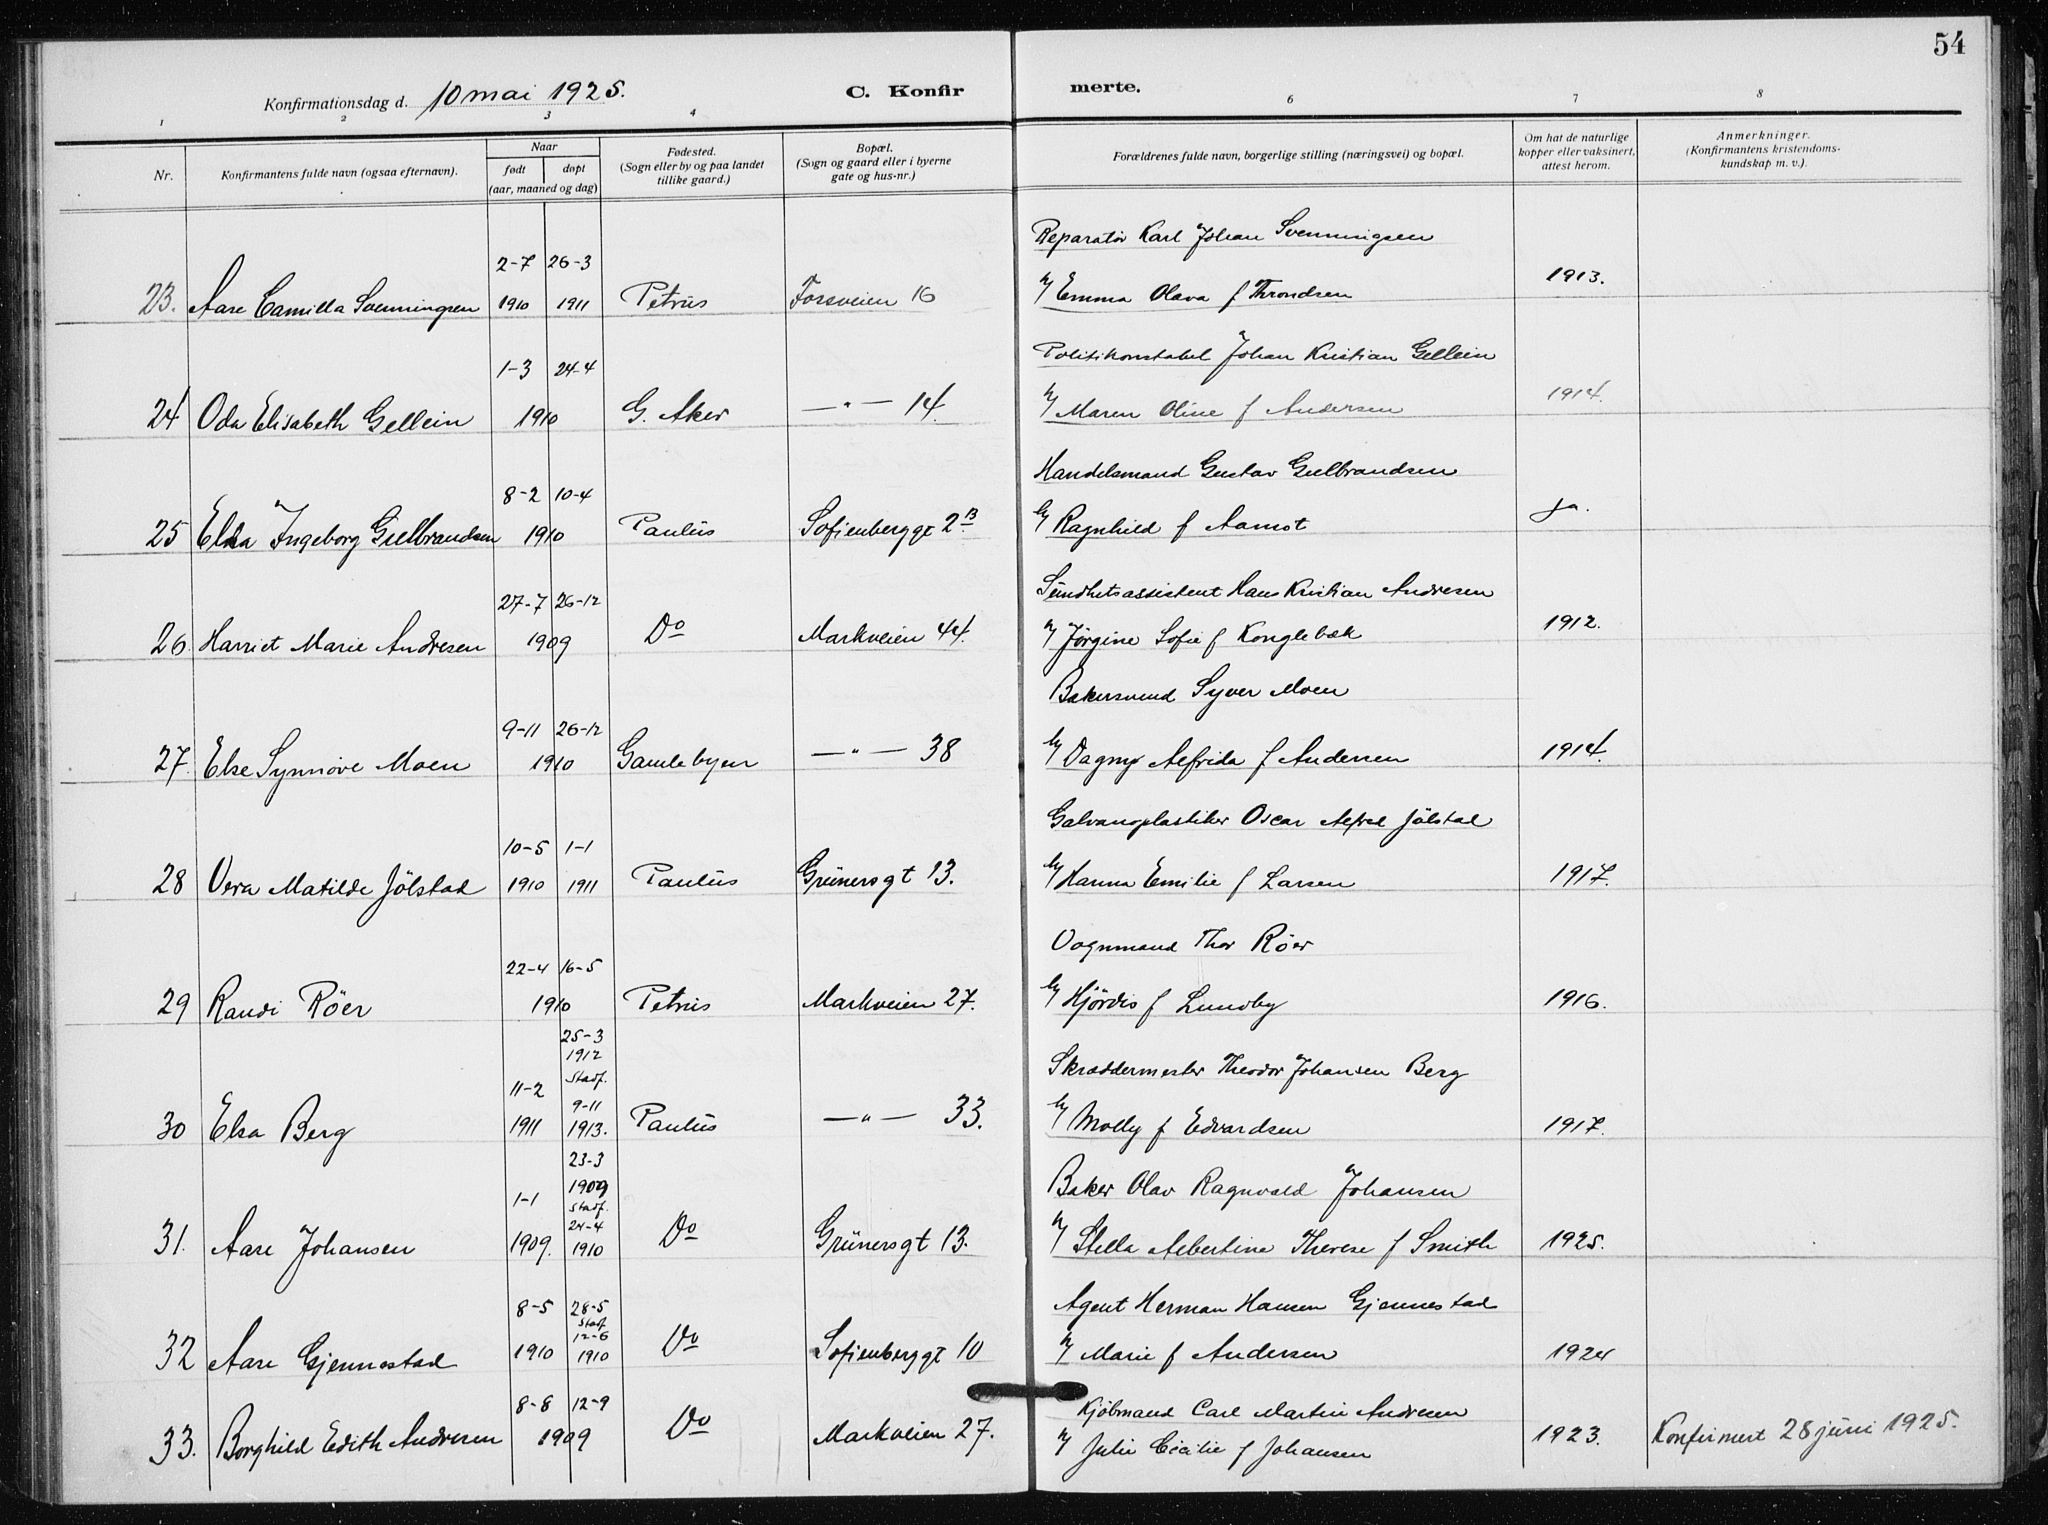 54
Konfirmationsdag d. 10 mai 1925. C. Konfir merte.
1 2 3 4 6 7 8
Nr. Konfirmantens fulde navn (ogsaa efternavn). Naar født døpt (aar, maaned og dag) Fødested. (Sogn eller by og paa landet tillike gaard.) Bopæl. (Sogn og gaard eller i byerne gate og hus-nr.) Forældrenes fulde navn, borgerlige stilling (næringsvei) og bopæl. Om hat de naturlige kopper eller vaksinert, attest herom. Anmerkninger. (Konfirmantens kristendoms-kundskap m. v.).
Reparatör Karl Johan Svenningsen
2-7 26-3
23. Aase Camilla Svenningsen 1910 1911 Petrus Fossveien 16 h/ Emma Olava f Throndsen 1913.
Politikonstabel Johan Kristian Gellein
1-3 24-4
24 Oda Elisabeth Gellein 1910 G. Aker —"— 14. h/ Maren Oline f Andersen 1914.
Handelsmand Gustav Gulbrandsen
8-2 10-4
25 Elsa Ingeborg Gulbrandsen 1910 Paulus Sofienberggt 2 B h/ Ragnhild f Aamot ja.
Sundhetsassistent Hans Kristian Andresen
27-7 26-12
26. Harriet Marie Andresen 1909 Do Markveien 44. h/ Jørgine Sofie f Konglebæk 1912.
Bakersvend Syver Moen
9-11 26-12
27. Else Synnöve Moen 1910 Gamlebyen —"— 38 h/ Dagny Alfrida f Andersen 1914.
Galvanoplastiker Oscar Alfred Jölstad
10-5 1-1
28 Vera Matilde Jölstad 1910 1911 Paulus Grünersgt 13. h/ Hanna Emilie f Larsen 1917.
Vognmand Thor Röer
22-4 16-5
29 Randi Röer 1910 Petrus Markveien 27. h/ Hjördis f Lundby 1916.
25-3
1912
Stadf.
Skræddermester Theodor Johansen Berg
11-2 9-11
30 Elsa Berg 1911 1913. Paulus —"— 33. h/ Molly f Edvardsen 1917.
23-3
1909
Stadf.
Baker Olav Ragnvald Johansen
1-1 24-4
31. Aase Johansen 1909. 1910 Do Grünersgt 13. h/ Stella Albertine Therese f Smith 1925.
Agent Herman Hansen Gjennestad
8-5 28-5
Stadf.
12-6
32 Aase Gjennestad 1910 1910 Do Sofienberggt 10 h/ Marie f Andersen 1924
Kjöbmand Carl Martin Andresen
8-8 12-9
33. Borghild Edith Andresen 1909 Do Markveien 27. h/ Julie Cecilie f Johansen 1923. Konfirmert 28 juni 1925.